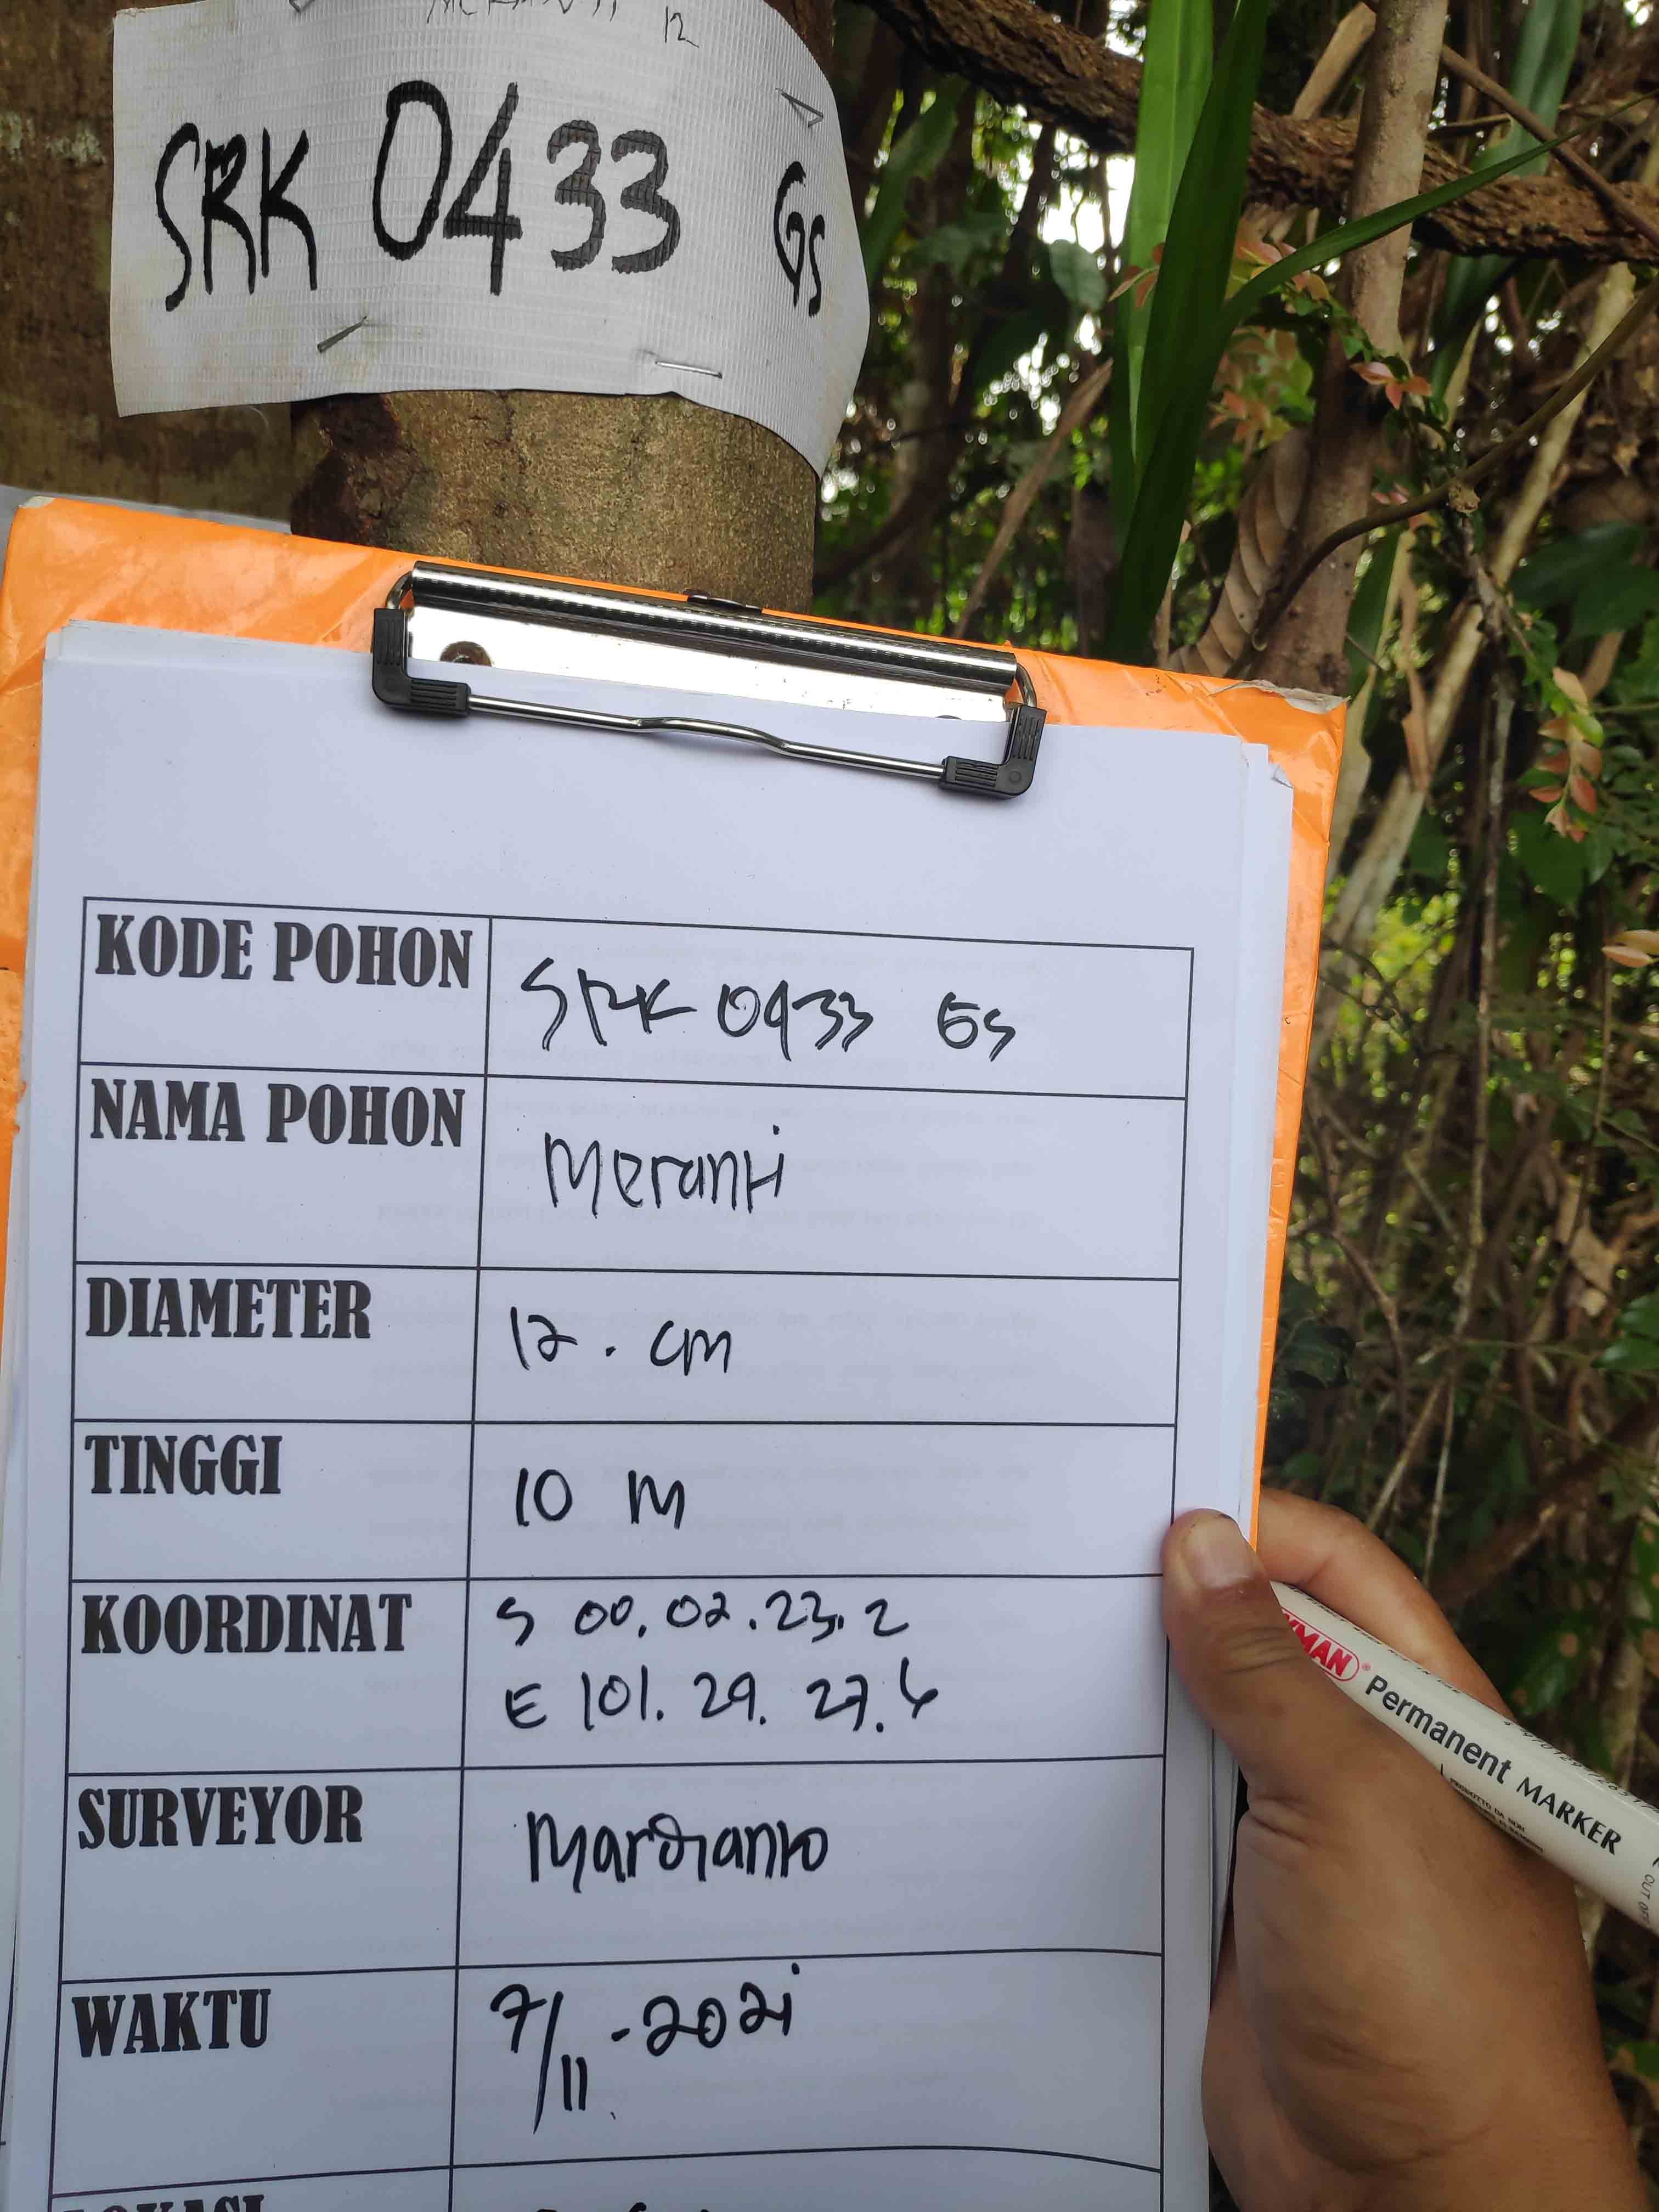 12
SRK 0433 GS
KODE POHON SRK 0433 GS
NAMA POHON Meranti
DIAMETER 12 . cm
TINGGI 10 M
KOORDINAT S 00.02.23.2
E 101.29.27.6
SURVEYOR Mardianto
WAKTU 7/11-2021
Permanent MARKER